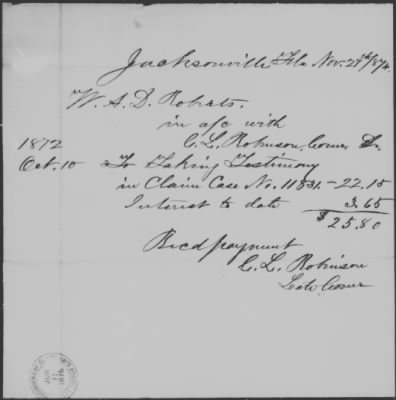 Jacksonville Fla Nov. 28th/874.
W. A. D. Roberts.
in a/c with
1872 C. L. Robinson, Comr Dr
Oct. 10 To Taking Testimony
in Claim Case No. 11831. — 22.15
Interest to date 3.65
$25.80
Recd payment
C. L. Robinson
Late Comr